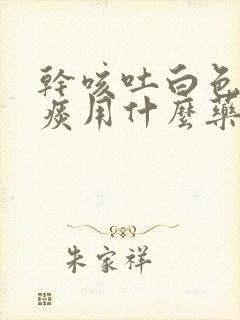 幹咳吐白色
痰用什麼藥
朱家祥